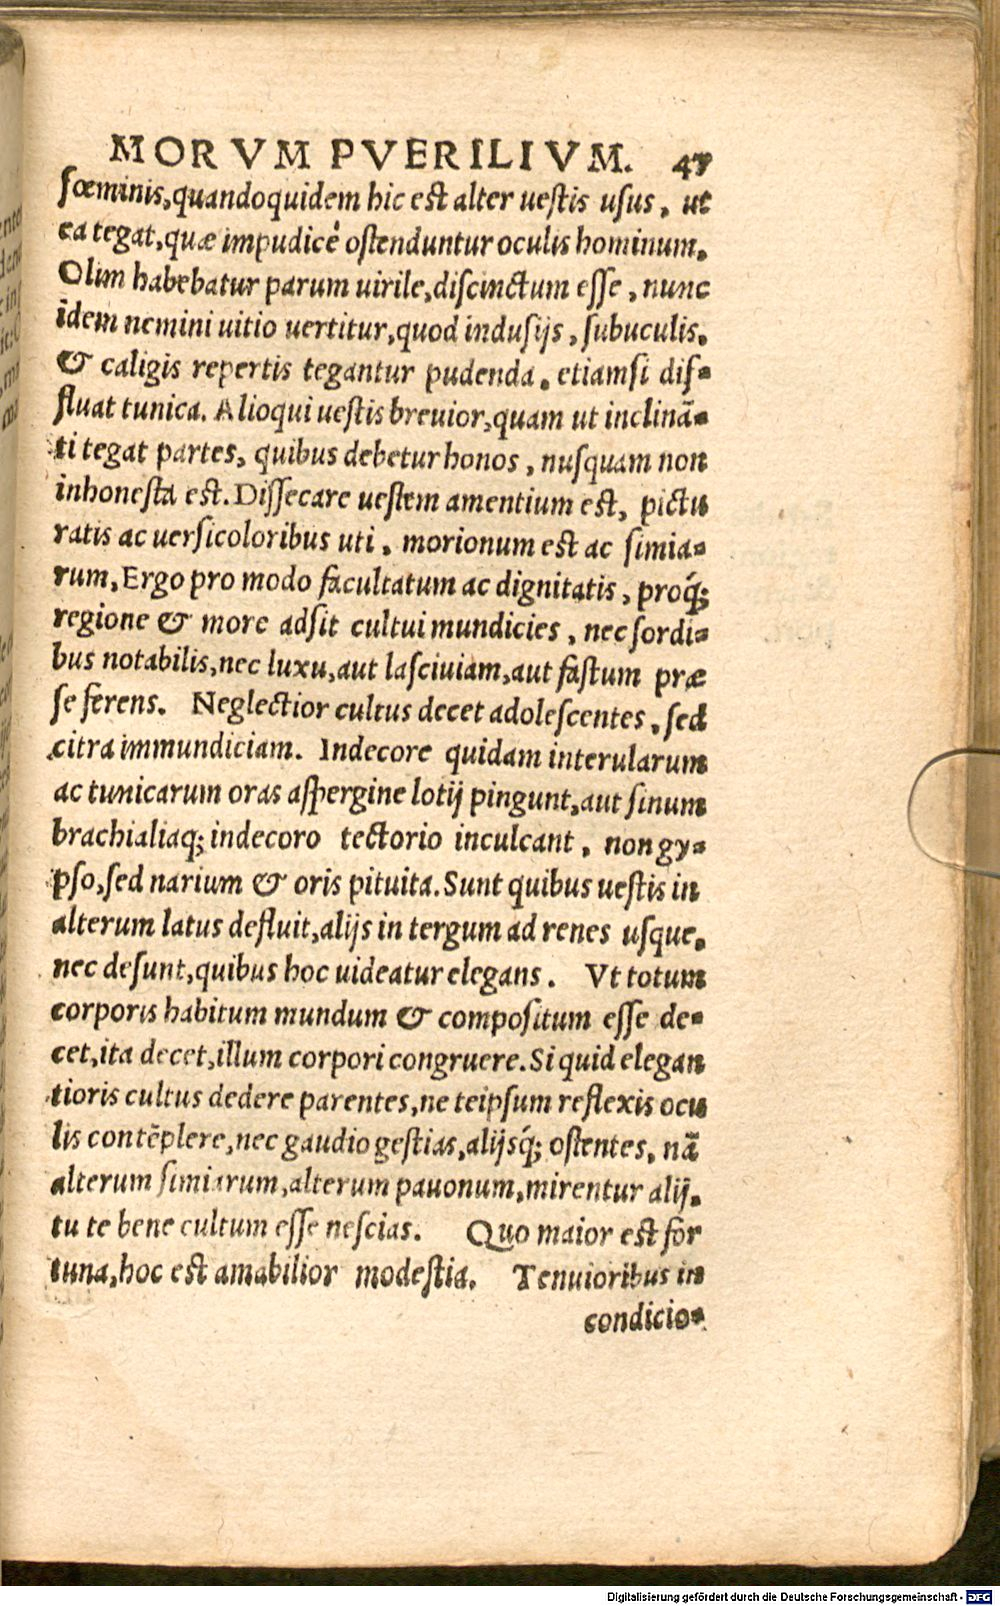 MORVM PVERILIVM. 47
fœminis, quandoquidem hic est alter uestis usus, ut
ea tegat, quæ impudicè ostenduntur oculis hominum.
Olim habebatur parum uirile, discinctum esse, nunc
idem nemini uitio uertitur, quod indusijs, subuculis,
& caligis repertis tegantur pudenda, etiamsi dif-
fluat tunica. Alioqui uestis breuior, quam ut inclinā-
ti tegat partes, quibus debetur honos, nusquam non
inhonesta est. Dissecare uestem amentium est, pictu
ratis ac uersicoloribus uti, morionum est ac simia-
rum, Ergo pro modo facultatum ac dignitatis, proq́;
regione & more adsit cultui mundicies, nec sordi-
bus notabilis, nec luxu, aut lasciuiam, aut fastum præ
se ferens. Neglectior cultus decet adolescentes, sed
citra immundiciam. Indecore quidam interularum
ac tunicarum oras aspergine lotij pingunt, aut sinum
brachialiaq; indecoro tectorio inculcant, non gy-
pso, sed narium & oris pituita. Sunt quibus uestis in
alterum latus defluit, alijs in tergum ad renes usque,
nec desunt, quibus hoc uideatur elegans. Vt totum
corporis habitum mundum & compositum esse de-
cet, ita decet, illum corpori congruere. Si quid elegan
tioris cultus dedere parentes, ne teipsum reflexis ocu
lis contēplere, nec gaudio gestias, alijsq́; ostentes, nā
alterum simiarum, alterum pauonum, mirentur alij,
tu te bene cultum esse nescias. Quo maior est for
tuna, hoc est amabilior modestia. Tenuioribus in
condicio-
Digitalisierung gefördert durch die Deutsche Forschungsgemeinschaft - DFG